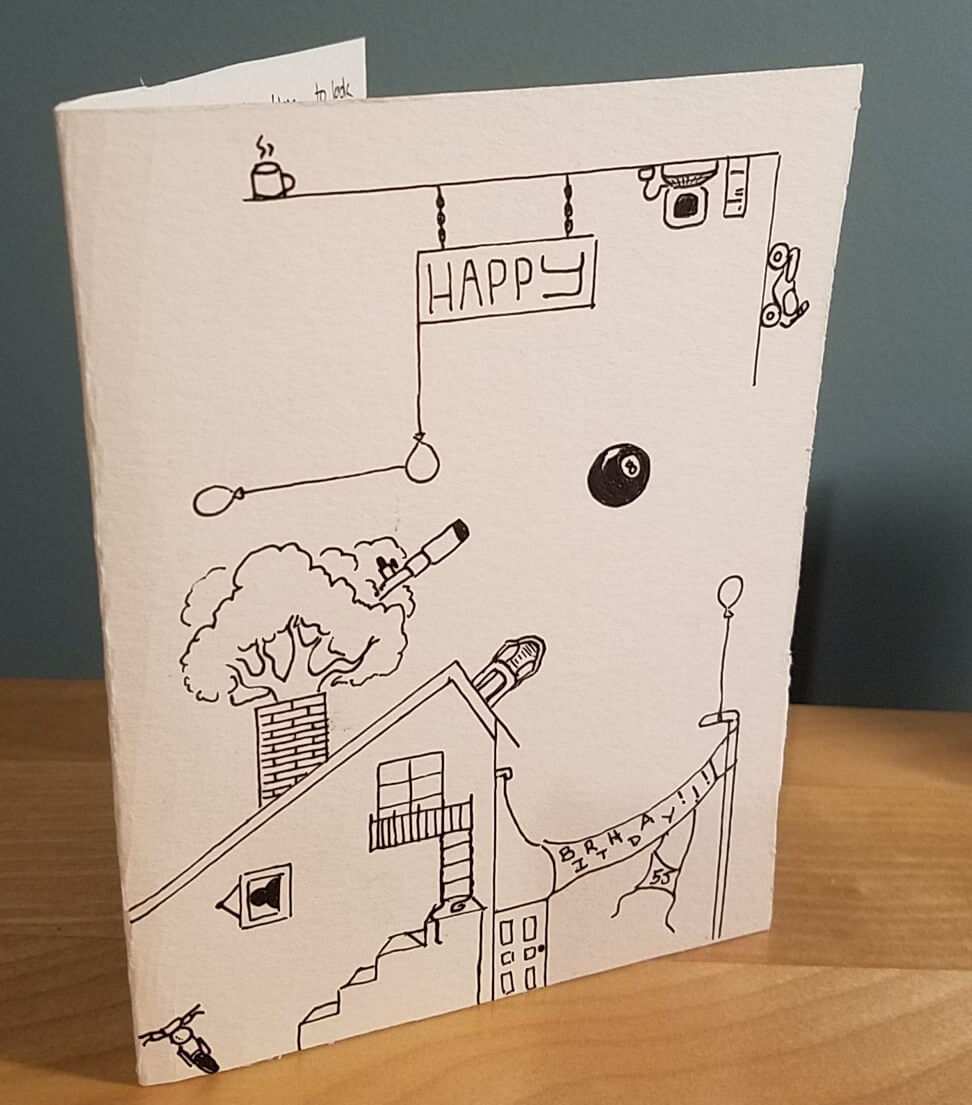 to look
HAPPY
8
BIRTHDAY!!!
55